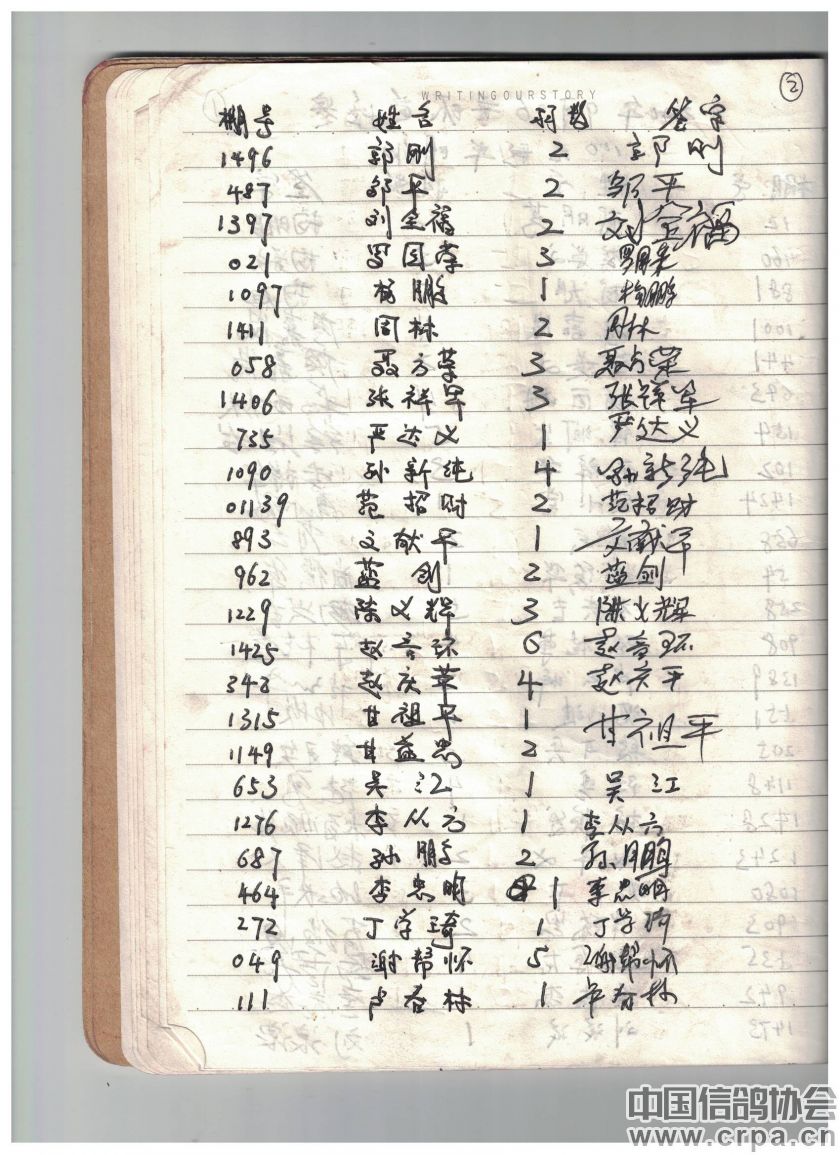 WRITINGOURSTORY
②
棚号 姓名 羽数 签字
1496 郭刚 2 郭刚
487 邹平 2 邹平
1397 刘全福 2 刘全福
021 罗国荣 3
1097 杨鹏 1 杨鹏
1411 周林 2 周林
058 聂方荣 3 聂方荣
1406 张祥军 3 张祥军
735 严达义 1 严达义
1090 孙新纯 4 孙新纯
01139 范招财 2 范招财
893 文献平 1 文献平
962 蓝剑 2 蓝剑
1229 陈义辉 3 陈义辉
1425 赵音环 6 赵音环
343 赵庆平 4 赵庆平
1315 甘祖平 1 甘祖平
1149 甘益忠 2
653 吴江 1 吴江
1276 李从方 1 李从方
687 孙鹏 2 孙鹏
464 李忠明 1 李忠明
272 丁学琦 1 丁学琦
049 谢帮怀 5 谢帮怀
111 卢春林 1 卢春林
中国信鸽协会
www.crpa.cn